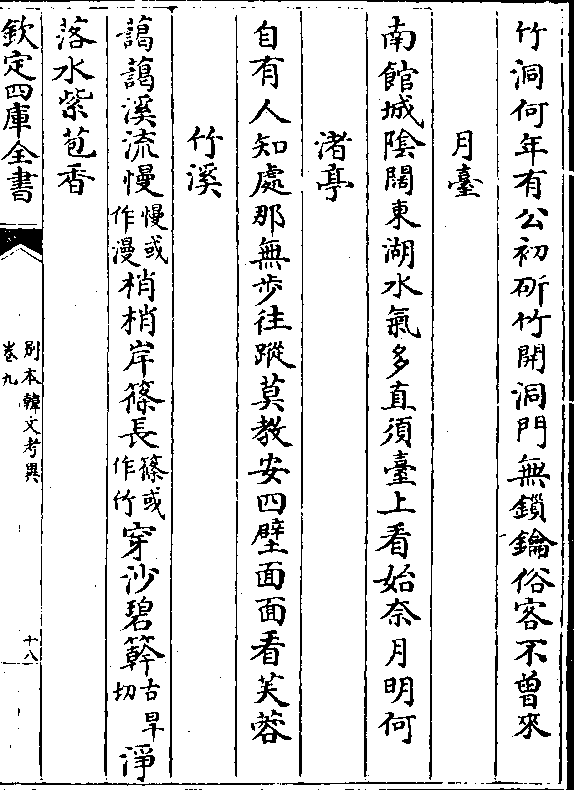 竹洞何年有公初斫竹開洞門無鎖鑰俗客不曾來
月臺
南館城陰闊東湖水氣多直須臺上看始奈月明何
渚亭
自有人知處那無步往蹤莫教安四壁面面看芙蓉
竹溪
藹藹溪流慢慢或作漫梢梢岸篠長篠或作竹穿沙碧簳古旱切淨
落水紫苞香
欽定四庫全書
別本韓文考異
卷九
十八